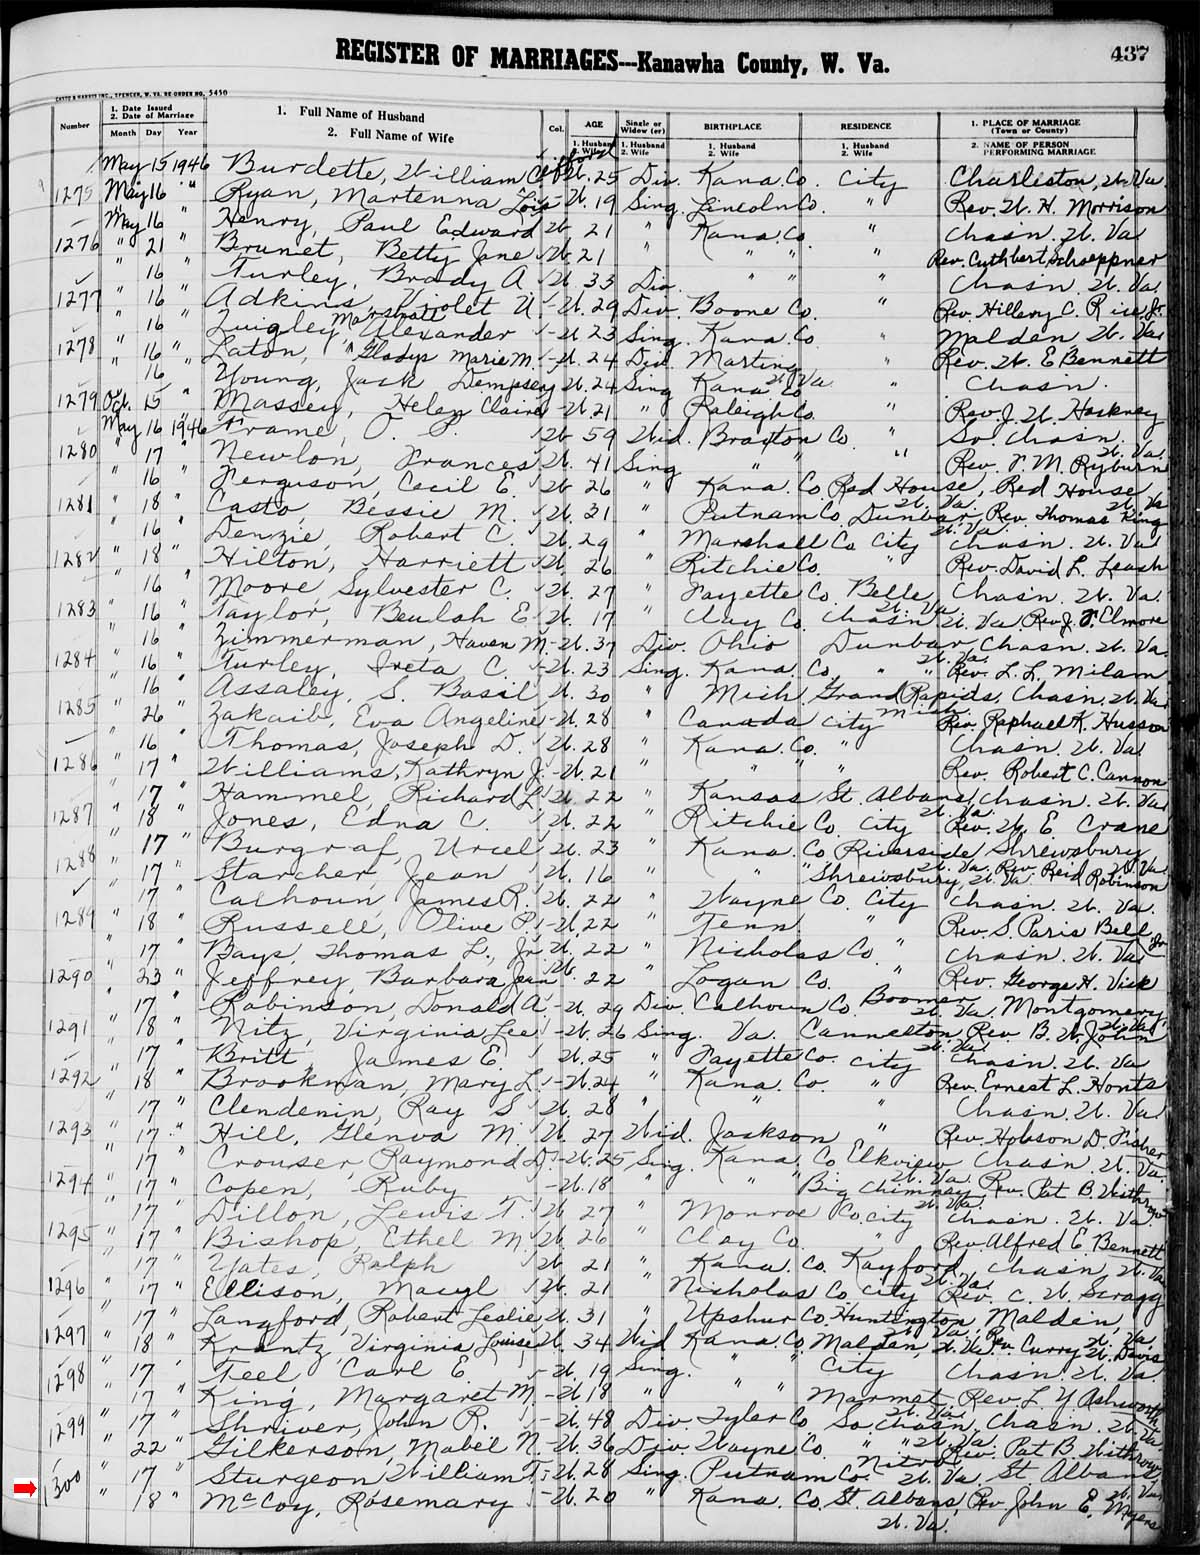 REGISTER OF MARRIAGES---Kanawha County, W. Va.
437
CASTO & HARRIS INC., SPENCER, W. VA. RE-ORDER NO. 5450
Number
1. Date Issued
2. Date of Marriage
Month Day Year
1. Full Name of Husband
2. Full Name of Wife
Col.
AGE
1. Husband
2. Wife
Single or
Widow (er)
1. Husband
2. Wife
BIRTHPLACE
1. Husband
2. Wife
RESIDENCE
1. Husband
2. Wife
1. PLACE OF MARRIAGE
(Town or County)
2. NAME OF PERSON
PERFORMING MARRIAGE
May 15 1946 Burdette, William Clifford W. 25 Div. Kana. Co. City Charleston, W. Va.
1275 May 16 " Ryan, Martenna Lois W. 19 Sing. Lincoln Co. " Rev. W. H. Morrison
May 16 " Henry, Paul Edward W 21 " Kana. Co. " Chasn. W. Va
1276 " 21 " Brunet, Betty Jane W. 21 " " " Rev. Cuthbert Schoeppner
" 16 Turley, Brady A. W. 33 Div. " " " Chasn. W. Va.
1277 " 16 " Adkins, Violet V. W. 29 Div. Boone Co. " Rev. Hillery C. Rice Jr.
" 16 Quigley, Marshall Alexander W 23 Sing. Kana. Co " Malden W. Va
1278 " 16 " Laton, " Gladys Marie M. W. 24 Div. Marting W. Va " Rev. W. E. Bennett
" 16 Young, Jack Dempsey W. 24 Sing Kana Co " Chasn.
1279 Oct. 15 " Massey, Helen Claire W 21 " Raleigh Co. " Rev. J. W. Hackney
May 16 1946 Frame, O. P. W 59 Wid. Braxton Co. " So. Chasn. W. Va.
1280 " 17 " Newlon, Frances W. 41 Sing " " " Rev. F. M. Ryburn
" 16 Ferguson, Cecil E. W 26 " Kana. Co Red House, W. Va. Red House W. Va
1281 " 18 " Casto, Bessie M. W. 31 " Putnam Co. Dunbar, W. Va. Rev. Thomas King
" 16 " Denzie, Robert C. W. 29 " Marshall Co City Chasn. W. Va
1282 " 18 " Hilton, Harriett W. 26 " Ritchie Co. " Rev. David L. Leash
" 16 " Moore, Sylvester C. W. 27 " Fayette Co Belle, W. Va. Chasn. W. Va.
1283 " 16 " Taylor, Beulah E. W. 17 " Clay Co. Chasn W. Va Rev. J. F. Elmore
" 16 Zimmerman, Haven M W. 37 Div. Ohio Dunbar, W. Va. Chasn. W. Va.
1284 " 16 " Turley, Ireta C. W. 23 Sing. Kana. Co. " " Rev. L. L. Milam
" 16 Assaley, S. Basil W. 30 " Mich. Grand Rapids, Mich. Chasn. W. Va.
1285 " 26 " Zakaib, Eva Angeline W. 28 " Canada City Rev. Raphael K. Husson
" 16 Thomas, Joseph D. W. 28 " Kana. Co. " Chasn. W. Va
1286 " 17 " Williams, Kathryn J. W. 21 " " " " Rev. Robert C. Cannon
" 17 " Hammel, Richard L. W. 22 " Kansas St. Albans, W. Va. Chasn. W. Va.
1287 " 18 Jones, Edna C. W. 22 " Ritchie Co. City Rev. W. E. Crane
" 17 " Burgraf, Uriel W. 23 " Kana. Co Riverside W. Va. Shrewsbury W. Va.
1288 " 17 " Starcher, Jean W. 16 " " " Shrewsbury, W. Va Rev. Reid Robinson
" 17 Calhoun, James R. W. 22 " Wayne Co. City Chasn. W. Va.
1289 " 18 " Russell, Olive P. W. 22 " Tenn. " Rev. S. Paris Bell, Jr.
" 17 " Bays, Thomas L., Jr. W. 22 " Nicholas Co " Chasn. W. Va
1290 " 23 " Jeffrey, Barbara Jean W. 22 " Logan Co. " Rev. George H. Vick
" 17 " Robinson, Donald A. W. 29 Div. Calhoun Co. Boomer W. Va. Montgomery W. Va.
1291 " 18 " Nitz, Virginia Lee W. 26 Sing. Va. Cannelton W. Va. Rev. B. W. John
" 17 " Britt, James E. W. 25 " Fayette Co. City Chasn. W. Va
1292 " 18 " Brookman, Mary L. W. 24 " Kana. Co. " Rev. Ernest L. Honts
" 17 " Clendenin, Ray S W. 28 " " " Chasn. W. Va
1293 " 17 " Hill, Glenva M. W. 27 Wid. Jackson " Rev. Hobson D. Fisher
" 17 " Crouser, Raymond D. W. 25 Sing. Kana. Co. Elkview W. Va. Chasn. W. Va.
1294 " 17 " Copen, Ruby W. 18 " " " Big Chimney, W. Va. Rev. Pat B. Withrow
" 17 " Dillon, Lewis T. W. 27 " Monroe Co. City Chasn. W. Va.
1295 " 17 " Bishop, Ethel M. W. 26 " Clay Co. " Rev. Alfred E. Bennett
" 17 " Yates, Ralph W. 21 " Kana. Co. Kayford, W. Va. Chasn. W. Va
1296 " 17 " Ellison, Macyl W. 21 " Nicholas Co City Rev. C. W. Scragg
" 17 " Langford, Robert Leslie W. 31 " Upshur Co. Huntington, W. Va. Malden, W. Va.
1297 " 18 " Krantz, Virginia Louise W. 34 Wid Kana. Co. Malden, W. Va Rev. Curry W. Davis
" 17 " Teel, Carl E. W. 19 Sing. " " City Chasn. W. Va.
1298 " 17 " King, Margaret M. W. 18 " " " Marmet, W. Va. Rev. L. Y. Ashworth
" 17 " Shriver, John R. W. 48 Div. Tyler Co So. Chasn, W. Va. Chasn. W. Va.
1299 " 22 " Gilkerson, Mabel N. W. 36 Div. Wayne Co " " Rev. Pat B. Withrow
" 17 " Sturgeon, William T. W. 28 Sing. Putnam Co. Nitro, W. Va. St Albans, W. Va.
1300 " 18 " McCoy, Rosemary W. 20 " Kana. Co. St. Albans, W. Va. Rev. John E. Myers